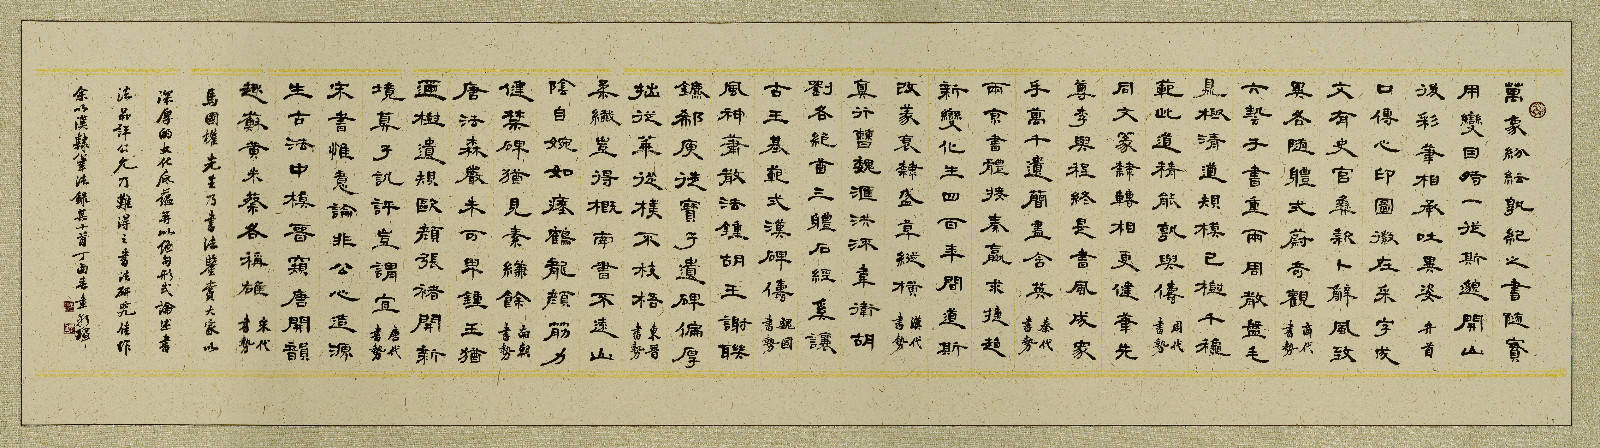 萬象紛紜孰紀之書隨實
用變因時一從斯邈開山
後彩筆相承吐異姿 弁首
口傳心印圖徵在采字成
文有史官龜報卜解風致
異各隨體式蔚奇觀 商代書勢
六藝子書重兩周散盤毛
見樹清道規模已樹千穐
範此道精能孰與儔 周代書勢
同文篆隸轉相更健筆先
尊李與程終是書風成家
手萬千遺簡盡含英 秦代書勢
兩京書體接秦嬴求捷趨
新變化生四百年間道斯
改篆衰隸盛草縱橫 漢代書勢
真行醫魏滙洪深韋衛胡
劉各絕酋三體石經奚讓
古王基範式漢碑儔 魏國書勢
風神蕭散法鍾胡王謝聯
鑣郗庾從寶子遺碑偏厚
拙從華從樸不枝梧 東晉書勢
柔纖豈得概南書不遠山
陰自婉如瘞鶴龍顏筋力
健禁碑猶見素縑餘 南朝書勢
唐法森嚴未可卑鍾王猶
邇樹遺規歐顏張褚開新
境莫子訊評豈謂宜 唐代書勢
宋書惟意論非公心造源
生古法中模晉窺唐開韻
趣蘇黃米蔡各稱雄 宋代書勢
馬國權先生乃書法鑒賞大家以
深厚的文化底蘊并以絕句形式論述書
法品評公允乃難得之書法研究佳作
余以漢隸筆法錄其十首丁酉春